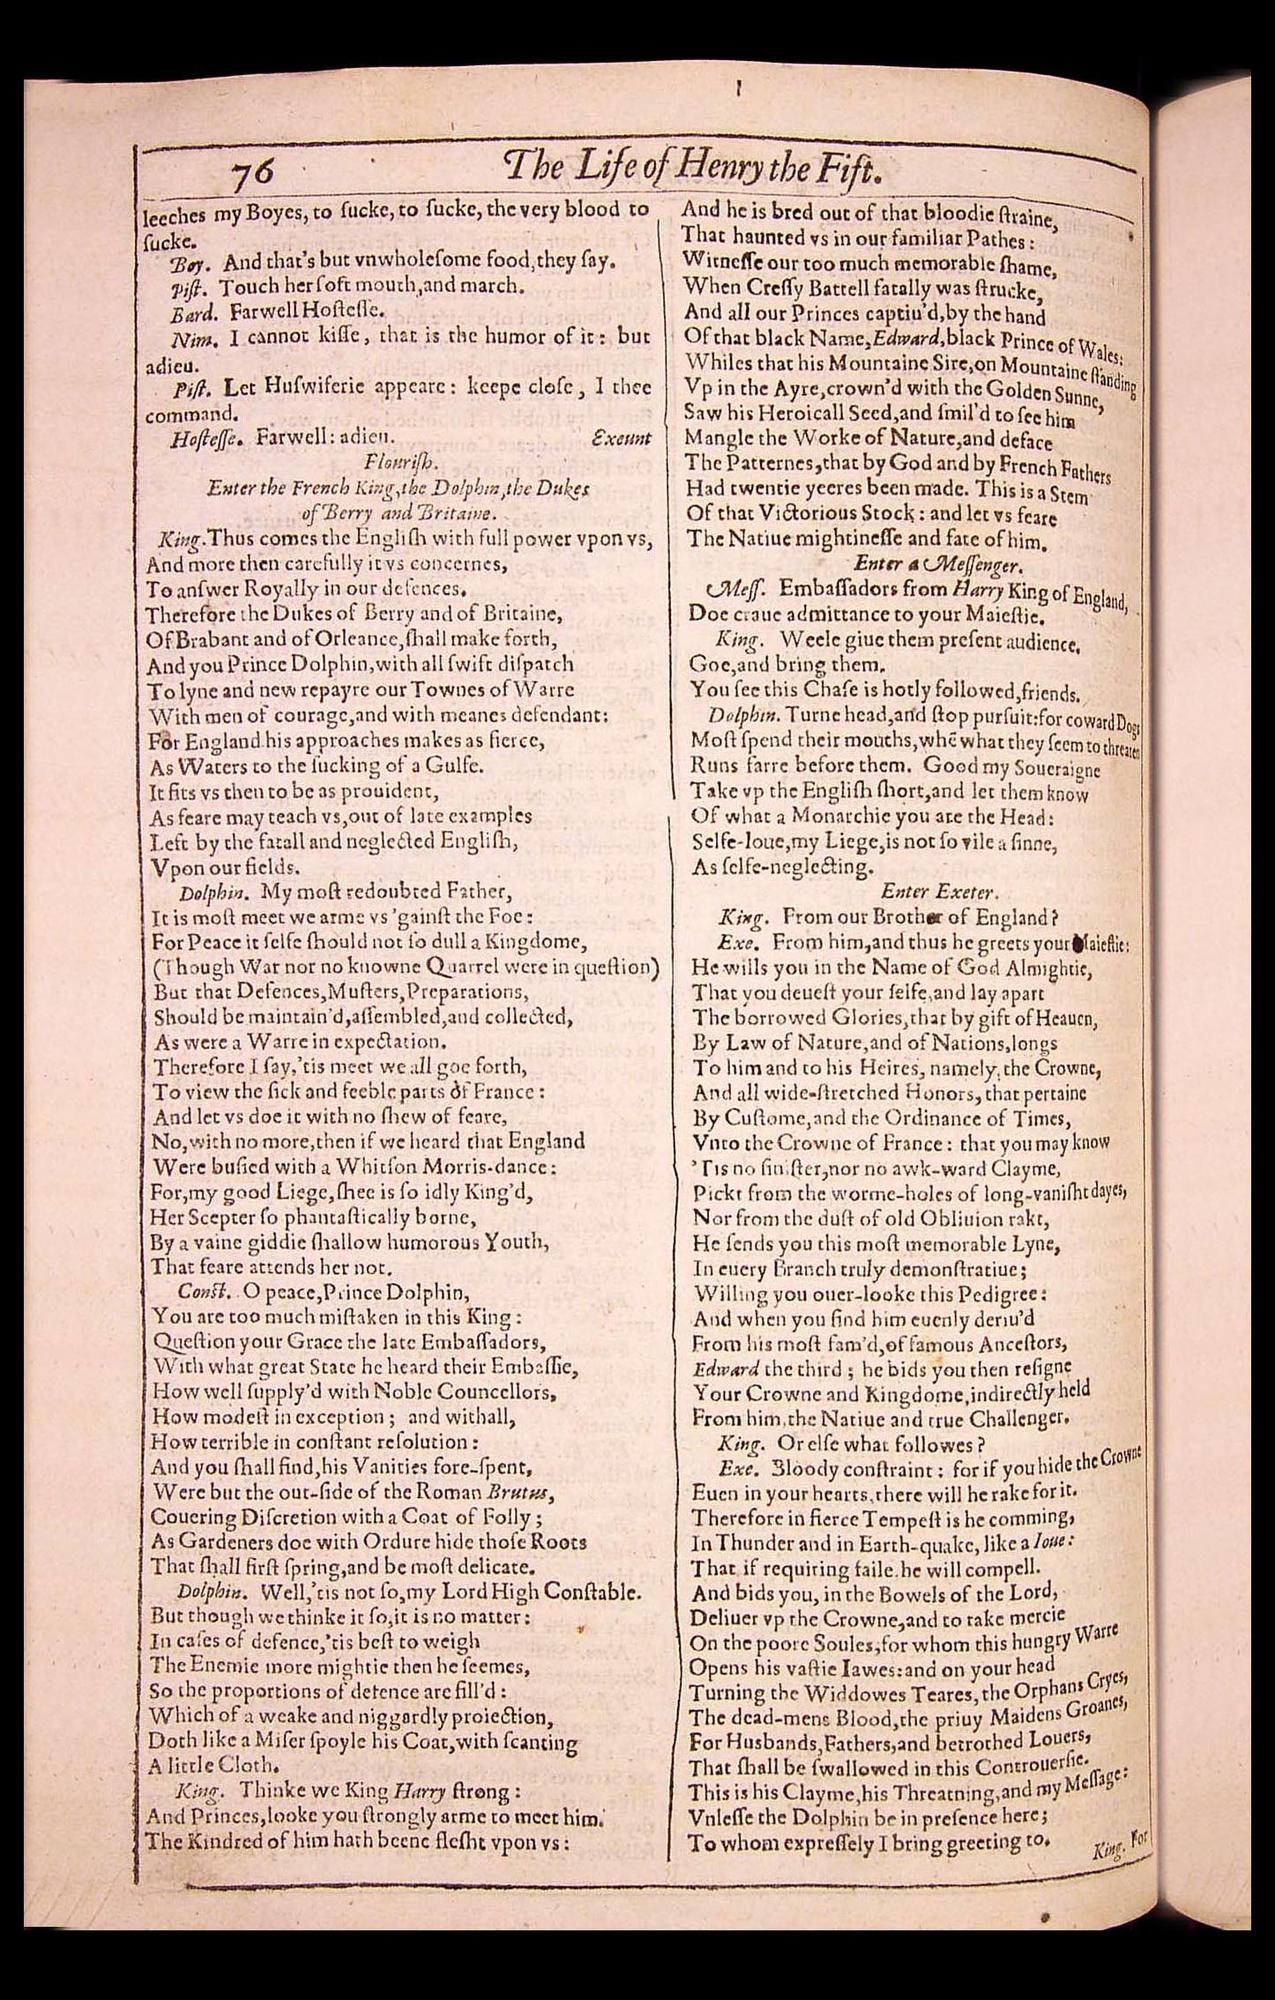 76
The Life of Henry the Fift.
leeches my Boyes, to ſucke, to ſucke, the very blood to
ſucke.
Boy. And that's but vnwholeſome food, they ſay.
Piſt. Touch her ſoft mouth, and march.
Bard. Farwell Hoſteſſe.
Nim. I cannot kiſſe, that is the humor of it: but
adieu.
Piſt. Let Huſwiferie appeare: keepe cloſe, I thee
command.
Hoſteſſe. Farwell: adieu. Exeunt
Flouriſh.
Enter the French King, the Dolphin, the Dukes
of Berry and Britaine.
King. Thus comes the Engliſh with full power vpon vs,
And more then carefully it vs concernes,
To anſwer Royally in our defences.
Therefore the Dukes of Berry and of Britaine,
Of Brabant and of Orleance, ſhall make forth,
And you Prince Dolphin, with all ſwift diſpatch
To lyne and new repayre our Townes of Warre
With men of courage, and with meanes defendant:
For England his approaches makes as fierce,
As Waters to the ſucking of a Gulfe.
It fits vs then to be as prouident,
As feare may teach vs, out of late examples
Left by the fatall and neglected Engliſh,
Vpon our fields.
Dolphin. My moſt redoubted Father,
It is moſt meet we arme vs 'gainſt the Foe:
For Peace it ſelfe ſhould not ſo dull a Kingdome,
(Though War nor no knowne Quarrel were in queſtion)
But that Defences, Muſters, Preparations,
Should be maintain'd, aſſembled, and collected,
As were a Warre in expectation.
Therefore I ſay, 'tis meet we all goe forth,
To view the ſick and feeble parts of France:
And let vs doe it with no ſhew of feare,
No, with no more, then if we heard that England
Were buſied with a Whitſon Morris-dance:
For, my good Liege, ſhee is ſo idly King'd,
Her Scepter ſo phantaſtically borne,
By a vaine giddie ſhallow humorous Youth,
That feare attends her not.
Conſt. O peace, Prince Dolphin,
You are too much miſtaken in this King:
Queſtion your Grace the late Embaſſadors,
With what great State he heard their Embaſſie,
How well ſupply'd with Noble Councellors,
How modeſt in exception; and withall,
How terrible in conſtant reſolution:
And you ſhall find, his Vanities fore-ſpent,
Were but the out-ſide of the Roman Brutus,
Couering Diſcretion with a Coat of Folly;
As Gardeners doe with Ordure hide thoſe Roots
That ſhall firſt ſpring, and be moſt delicate.
Dolphin. Well, 'tis not ſo, my Lord High Conſtable.
But though we thinke it ſo, it is no matter:
In caſes of defence, 'tis beſt to weigh
The Enemie more mightie then he ſeemes,
So the proportions of defence are fill'd:
Which of a weake and niggardly proiection,
Doth like a Miſer ſpoyle his Coat, with ſcanting
A little Cloth.
King. Thinke we King Harry ſtrong:
And Princes, looke you ſtrongly arme to meet him.
The Kindred of him hath beene fleſht vpon vs:
And he is bred out of that bloodie ſtraine,
That haunted vs in our familiar Pathes:
Witneſſe our too much memorable ſhame,
When Creſſy Battell fatally was ſtrucke,
And all our Princes captiu'd, by the hand
Of that black Name, Edward, black Prince of Wales:
Whiles that his Mountaine Sire, on Mountaine ſtanding
Vp in the Ayre, crown'd with the Golden Sunne,
Saw his Heroicall Seed, and ſmil'd to ſee him
Mangle the Worke of Nature, and deface
The Patternes, that by God and by French Fathers
Had twentie yeeres been made. This is a Stem
Of that Victorious Stock: and let vs feare
The Natiue mightineſſe and fate of him.
Enter a Meſſenger.
Meſſ. Embaſſadors from Harry King of England,
Doe craue admittance to your Maieſtie.
King. Weele giue them preſent audience.
Goe, and bring them.
You ſee this Chaſe is hotly followed, friends.
Dolphin. Turne head, and ſtop purſuit: for coward Dogs
Moſt ſpend their mouths, whē what they ſeem to threaten
Runs farre before them. Good my Soueraigne
Take vp the Engliſh ſhort, and let them know
Of what a Monarchie you are the Head:
Selfe-loue, my Liege, is not ſo vile a ſinne,
As ſelfe-neglecting.
Enter Exeter.
King. From our Brother of England?
Exe. From him, and thus he greets your Maieſtie:
He wills you in the Name of God Almightie,
That you deueſt your ſelfe, and lay apart
The borrowed Glories, that by gift of Heauen,
By Law of Nature, and of Nations, longs
To him and to his Heires, namely, the Crowne,
And all wide-ſtretched Honors, that pertaine
By Cuſtome, and the Ordinance of Times,
Vnto the Crowne of France: that you may know
'Tis no ſiniſter, nor no awk-ward Clayme,
Pickt from the worme-holes of long-vaniſht dayes,
Nor from the duſt of old Obliuion rakt,
He ſends you this moſt memorable Lyne,
In euery Branch truly demonſtratiue;
Willing you ouer-looke this Pedigree:
And when you find him euenly deriu'd
From his moſt fam'd, of famous Anceſtors,
Edward the third; he bids you then reſigne
Your Crowne and Kingdome, indirectly held
From him, the Natiue and true Challenger.
King. Or elſe what followes?
Exe. Bloody conſtraint: for if you hide the Crowne
Euen in your hearts, there will he rake for it.
Therefore in fierce Tempeſt is he comming,
In Thunder and in Earth-quake, like a Ioue:
That if requiring faile, he will compell.
And bids you, in the Bowels of the Lord,
Deliuer vp the Crowne, and to take mercie
On the poore Soules, for whom this hungry Warre
Opens his vaſtie Iawes: and on your head
Turning the Widdowes Teares, the Orphans Cryes,
The dead-mens Blood, the priuy Maidens Groanes,
For Husbands, Fathers, and betrothed Louers,
That ſhall be ſwallowed in this Controuerſie.
This is his Clayme, his Threatning, and my Meſſage:
Vnleſſe the Dolphin be in preſence here;
To whom expreſſely I bring greeting to.
King. For